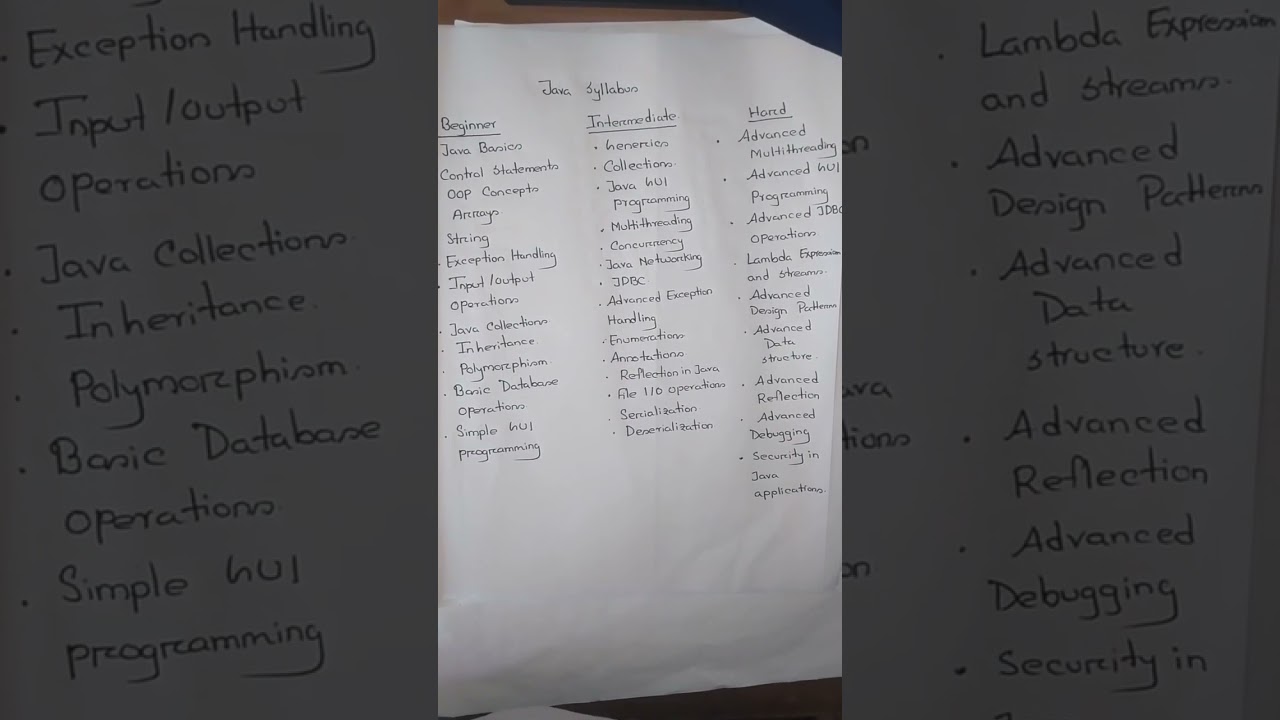 Java Syllabus
Beginner
Java Basics
Control Statements
OOP Concepts
Arrays
String
• Exception Handling
• Input/output
Operations
• Java Collections
• Inheritance.
• Polymorphism.
• Basic Database
Operations
• Simple GUI
programming
Intermediate
• Generics
• Collections.
• Java GUI
programming
• Multithreading
• Concurrency
• Java Networking
• JDBC
• Advanced Exception
Handling
• Enumerations
• Annotations
• Reflection in Java
• File I/O operations
• Serialization
• Deserialization
Hard
• Advanced
Multithreading
• Advanced GUI
Programming
• Advanced JDBC
Operations
• Lambda Expression
and streams.
• Advanced
Design Patterns
• Advanced
Data
structure.
• Advanced
Reflection
• Advanced
Debugging
• Security in
Java
applications.
• Exception Handling
• Input/output
Operations
• Java Collections
• Inheritance.
• Polymorphism.
• Basic Database
Operations
• Simple GUI
programming
• Lambda Expression
and streams.
• Advanced
Design Patterns
• Advanced
Data
structure.
• Advanced
Reflection
• Advanced
Debugging
• Security in